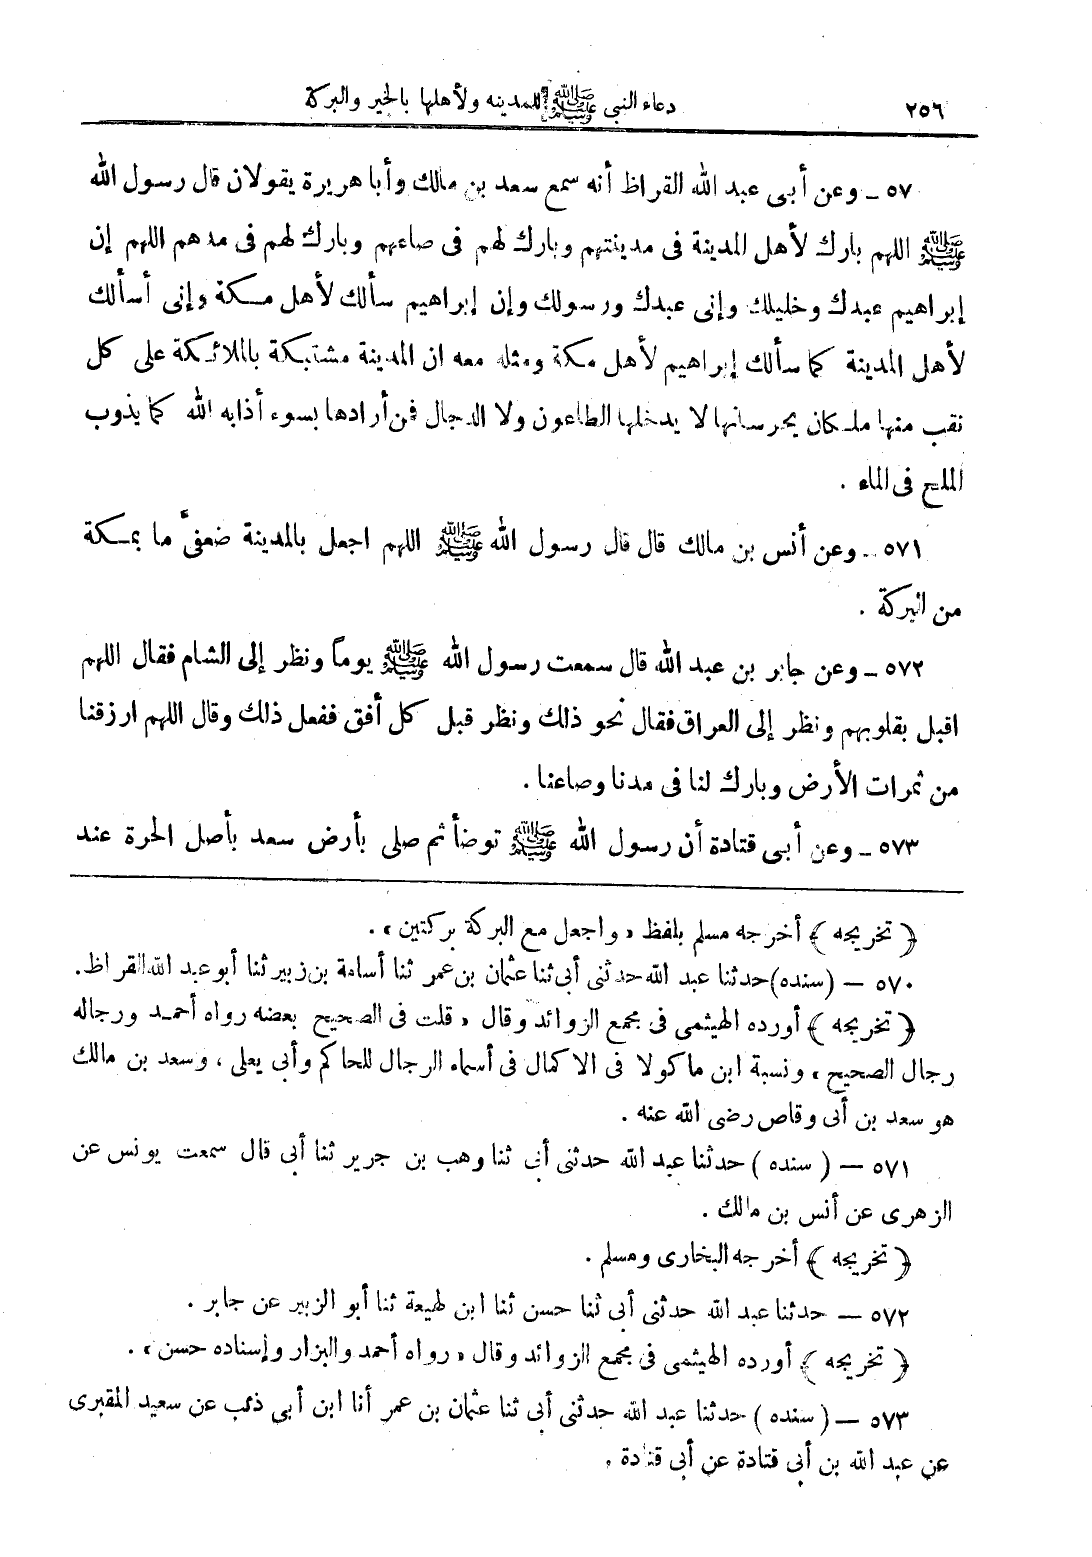 ٢٥٦ دعاء النبى ﷺ للمدينه ولأهلها بالخير والبركة
٥٧ ـ وعن أبى عبد الله القراظ أنه سمع سعد بن مالك وأبا هريرة يقولان قال رسول الله
ﷺ اللهم بارك لأهل المدينة فى مدينتهم وبارك لهم فى صاعهم وبارك لهم فى مدهم اللهم إن
إبراهيم عبدك وخليلك وإنى عبدك ورسولك وإن إبراهيم سألك لأهل مكة وإنى أسألك
لأهل المدينة كما سألك إبراهيم لأهل مكة ومثله معه ان المدينة مشتبكة بالملائكة على كل
نقب منها ملكان يحرسانها لا يدخلها الطاعون ولا الدجال فمن أرادها بسوء أذابه الله كما يذوب
الملح فى الماء .
٥٧١ ـ وعن أنس بن مالك قال قال رسول الله ﷺ اللهم اجعل بالمدينة ضعفىْ ما بمكة
من البركة .
٥٧٢ ـ وعن جابر بن عبد الله قال سمعت رسول الله ﷺ يوماً ونظر إلى الشام فقال اللهم
اقبل بقلوبهم ونظر إلى العراق فقال نحو ذلك ونظر قبل كل أفق ففعل ذلك وقال اللهم ارزقنا
من ثمرات الأرض وبارك لنا فى مدنا وصاعنا .
٥٧٣ ـ وعن أبى قتادة أن رسول الله ﷺ توضأ ثم صلى بأرض سعد بأصل الحرة عند
﴿ تخريجه ﴾ أخرجه مسلم بلفظ « واجعل مع البركة بركتين » .
٥٧٠ — ( سنده ) حدثنا عبد الله حدثنى أبى ثنا عثمان بن عمر ثنا أسامة بن زبير ثنا أبو عبد الله القراظ .
﴿ تخريجه ﴾ أورده الهيثمى فى مجمع الزوائد وقال « قلت فى الصحيح بعضه رواه أحمد ورجاله
رجال الصحيح » ونسبة ابن ماكولا فى الاكمال فى أسماء الرجال للحاكم وأبى يعلى ، وسعد بن مالك
هو سعد بن أبى وقاص رضى الله عنه .
٥٧١ — ( سنده ) حدثنا عبد الله حدثنى أبى ثنا وهب بن جرير ثنا أبى قال سمعت يونس عن
الزهرى عن أنس بن مالك .
﴿ تخريجه ﴾ أخرجه البخارى ومسلم .
٥٧٢ — حدثنا عبد الله حدثنى أبى ثنا حسن ثنا ابن لهيعة ثنا أبو الزبير عن جابر .
﴿ تخريجه ﴾ أورده الهيثمى فى مجمع الزوائد وقال « رواه أحمد والبزار وإسناده حسن » .
٥٧٣ — ( سنده ) حدثنا عبد الله حدثنى أبى ثنا عثمان بن عمر أنا ابن أبي ذئب عن سعيد المقبرى
عن عبد الله بن أبى قتادة عن أبى قتادة .